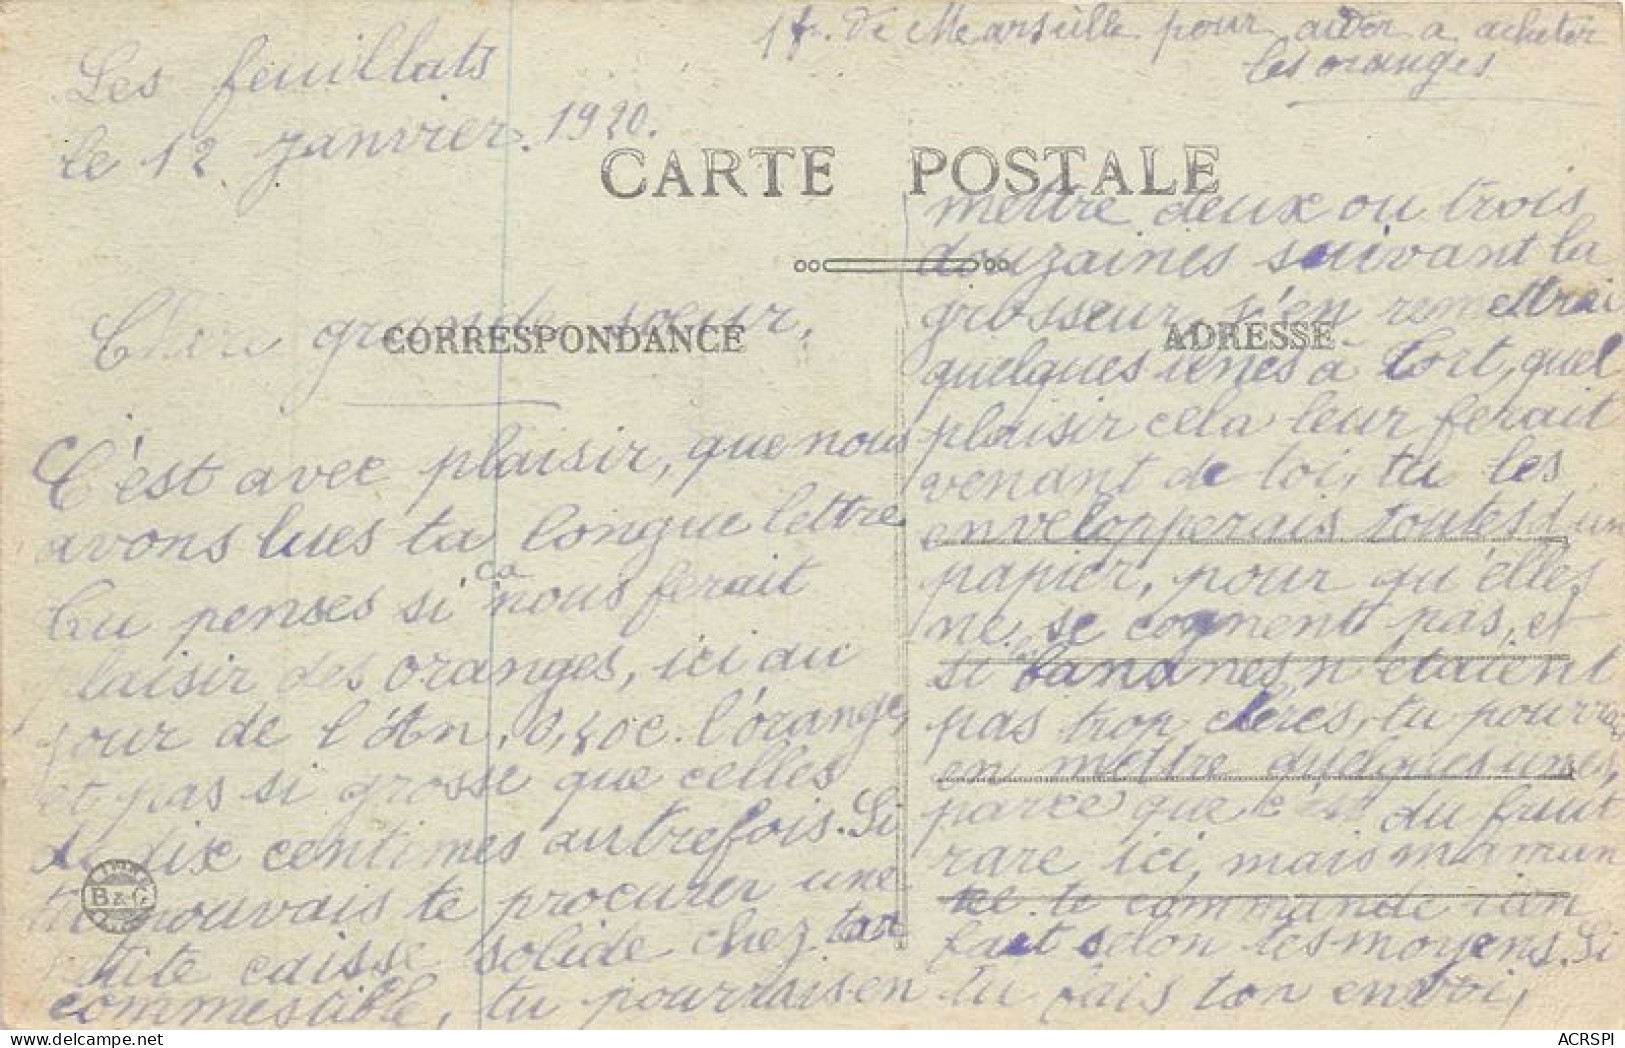 1 fr. de Marseille pour aider a acheter
les oranges
Les feuillats
le 12 Janvier. 1920.
CARTE POSTALE
CORRESPONDANCE
ADRESSE
Chère grande soeur,
C'est avec plaisir, que nous
avons lues ta longue lettre
Tu penses si ça nous ferait
plaisir des oranges, ici au
jour de l'An, 0,40c. l'orange,
et pas si grosse que celles
de dix centimes autrefois. Si
tu pouvais te procurer une
petite caisse solide chez
commestible, tu pourrais en
mettre deux ou trois
douzaines suivant la
grosseur, j'en remettrai
quelques unes à Tort, quel
plaisir cela leur ferait
venant de toi, tu les
envelopperais toutes d'un
papier, pour qu'elles
ne se cognent pas, et
si les bananes n'étaient
pas trop chères, tu pourrais
en mettre quelques unes,
parce que c'est du fruit
rare ici, mais maman
te commande rien
fait selon tes moyens. Si
tu fais ton envoi,
B & G
ACRSPI